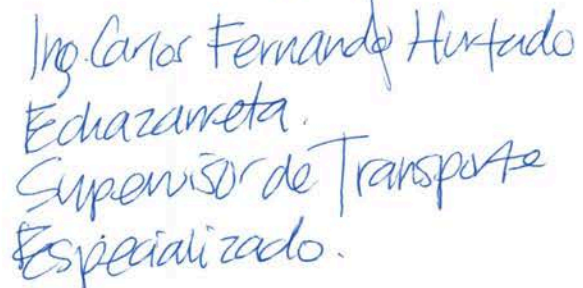 Ing. Carlos Fernando Hurtado
Echazarreta.
Supervisor de Transporte
Especializado.